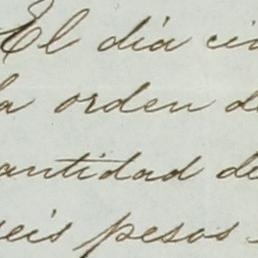 El día ci
la orden d
antidad de
seis pesos